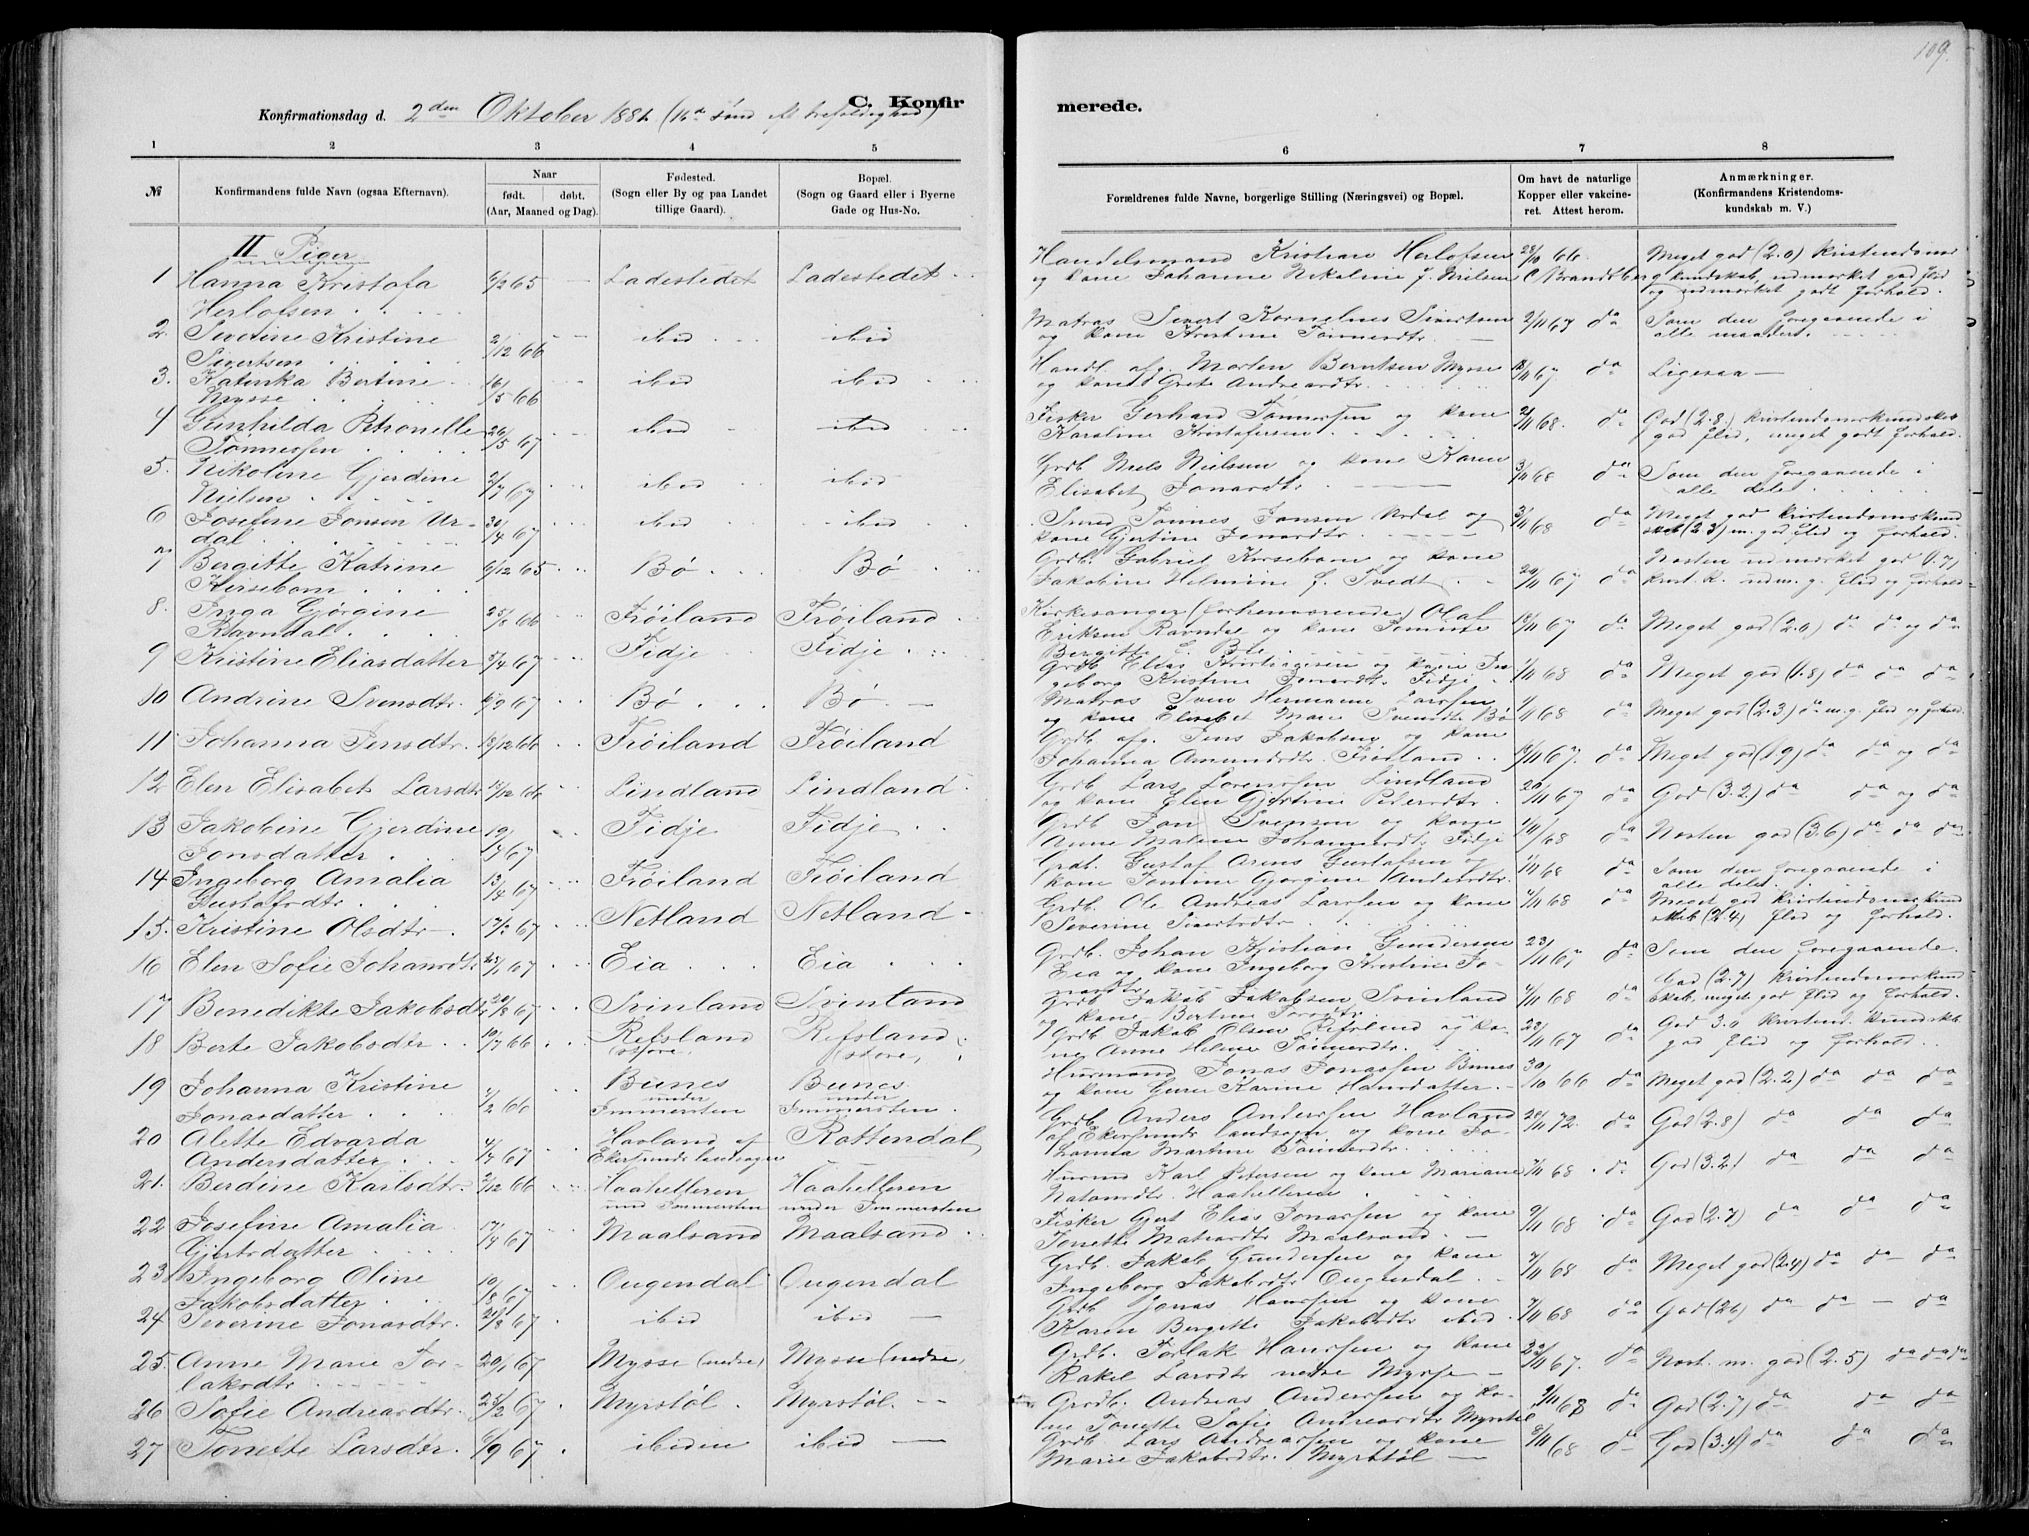 109.
C. Konfirmerede.
Konfirmationsdag d. 2den Oktober 1881 (16de Sønd eft trefoldighed)
1 2 3 4 5 6 7 8
№
Konfirmandens fulde Navn (ogsaa Efternavn).
Naar
født. døbt.
(Aar, Maaned og Dag).
Fødested.
(Sogn eller By og paa Landet
tillige Gaard).
Bopæl.
(Sogn og Gaard eller i Byerne
Gade og Hus-No.
Forældrenes fulde Navne, borgerlige Stilling (Næringsvei) og Bopæl.
Om havt de naturlige
Kopper eller vakcine-
ret. Attest herom.
Anmærkninger.
(Konfirmandens Kristendoms-
kundskab m. V.)
II Piger
1 Hanna Kristofa Herlofsen 6/2 65 Ladestedet Ladestedet
Handelsmand Kristian Herlofsen
og kone Johanne Nikoline f. Nielsen
28/10 66 C Brandtberg
Meget god (2.0) kristendoms
kundskab, udmærket god flid
og udmærket godt forhold.
2 Severine Kristine Sivertsen 2/12 66 ibid ibid
Matros Sivert Kornelius Sivertsen
og kone Kristine Tønnesdtr.
2/11 67 do
Som den foregaaende i
alle maader.
3. Katinka Bertine Mysse 16/5 66 ibid ibid
Handl. afg. Morten Berntsen Mysse
og kone Grete Andreasdtr.
67. do Ligesaa —
4 Gunhilda Petronelle Tønnessen 26/5 67 ibid ibid
Fisker Gerhard Tønnessen og kone
Karoline Kristofersen
2/11 68. do
God (2.8) kristendomskundskab
god flid, meget godt forhold.
5. Nikoline Gjerdine Nielsen 2/7 67 ibid ibid
Grdb Niels Nielsen og kone Karen
Elisabet Jonasdtr.
3/11 68 do
Som den foregaaende i
alle dele.
6 Josefine Jonsen Urdal 30/4 67 ibid ibid
Smed Tønnes Jonsen Urdal og
kone Gjertine Jonasdtr.
3/11 68 do
Meget god kristendomskund
skab (2.3) m. god flid og forhold.
7 Bergitte Katrine Kirsebom 6/12 65 Bø Bø
Grdb. Gabriel Kirsebom og kone
Jakobine Helmine f. Tvedt.
29/11 67 do
Næsten udmærket god (1.7)
krist. k. udm. g. flid og forhold
8. Inga Gjørgine Ravndal 25/8 66 Frøiland Frøiland
Kirkesanger (forhenværende) Olaf
Eriksen Ravndal og kone Tomine
Bergitte E. Ble
67 do Meget god (2.0) do do og do
9 Kristine Eliasdatter 5/4 67 Fidje Fidje
Grdb Elias Kristiansen og kone In-
geborg Kristine Jonasdtr. Fidje
1/11 68 do Meget god (1.8) do do do
10 Andrine Svendtr. 6/9 67 Bø Bø
Matros Sven Hermann Larsen
og kone Elisabet Marie Svendtr Bø
1/11 68 do Meget god (2.3) do m. g. flid og forhold.
11 Johanna Jensdtr. 18/12 66 Frøiland Frøiland
Grdb. afg. Jens Jakobsen og kone
Johanna Amundsdtr. Frøiland
67. do Meget god (1.9) do do og do
12 Elen Elisabet Larsdtr 17/12 66 Lindland Lindland
Grdb Lars Lorentsen Lindland
og kone Elen Gjertine Pedersdtr.
20/11 67 do God (3.2) do do og do
13 Jakobine Gjerdine Jonsdatter 67 Fidje Fidje
Grdb Jon Svenson og kone
Anne Malene Johannesdtr. Fidje
68 do Næsten god (3.6) do do do
14 Ingeborg Amalia Gustafsdtr. 13/4 67 Frøiland Frøiland
Grdb. Gustaf Arens Gustafsen og
kone Tomine Gjørgine Andersdtr.
68 do
Som den foregaaende i
alle dele.
15. Kristine Olsdtr 17/2 67 Netland Netland
Grdb. Ole Andreas Larsen og kone
Severine Sivertsdtr
4/11 68 do
Meget god kristendomskund
skab (2.4) flid og forhold.
16 Elen Sofie Johansdtr. 67 Eia Eia
Grdb. Johan Kristian Gundersen
Eia og kone Ingeborg Kristine Jo-
nasdtr.
23/11 67 do Som den foregaaende.
17 Benedikte Jakobsdtr 67 Svinland Svinland
Grdb Jakob Jakobsen Svinland
og kone Bertine
4/11 68 do
God (2.7) kristendomskund
skab, meget god flid og forhold.
18 Berte Jakobsdtr 10/7 66 Refsland (store, Refsland (store,
Grdb Jakob Olsen Refsland og ko-
ne Anne Helene Tønnesdtr.
28/11 67 do
God 3.0 kristend. kundskb
god flid og forhold.
19 Johanna Kristine Jonasdatter 4/2 66 Bunes under Immersten Bunes under Immersten
Husmand Jonas Jonassen Bunes
og kone Guri Karine Hansdatter
30/10 66 do Meget god (2.2) do do do
20 Alette Edvarda Andersdatter 4/4 67 Havland af Ekersunds landsogn Rottendal
Grdb Anders Anderssen Havland
af Ekersunds landsogn og kone Jo-
hanna Martine Tønnesdtr.
28/11 72. do God (2.8) do do do
21. Berdine Karlsdtr. 12 66 Haahelleren und Immersten Haahelleren under Immersten
Husmd Karl Petersen og kone Mariane
Natansdtr. Haahelleren
7/11 68 do God (3.2) do do do
22 Josefine Amalia Gjertsdatter 17/4 67 Maalsand Maalsand
Fisker Gjert Elias Jonassen og kone
Tonette Matsdtr Maalsand.
9/11 68 do God (2.7) do do do
23. Ingeborg Oline Jakobsdatter 10/8 67 Ougendal Ougendal
Grdb. Jakob Gundersen og kone
Ingeborg Jakobsdtr Ougendal
7/11 68 do Meget god (2.4) do do do
24 Severine Jonasdtr. 21/8 67 ibid ibid
Grdb Jonas Hanssen og kone
Karen Bergitte Jakobsdtr ibid.
7/11 68 do God (2.6) do do do
25. Anne Marie Torlaksdtr 20/1 67 Mysse (nedre) Mysse (nedre,
Grdb. Torlak Hanssen og kone
Rakel Larsdtr nedre Mysse
67. do Næst. m. god (2.5) do do do
26 Sofie Andreasdtr. 25/2 67 Myrstøl Myrstøl
Grdb. Andreas Anderssen og ko-
ne Tonette Sofie Andreasdtr Myrstøl
9/11 68 do God (2.7) do do do
27 Tonette Larsdtr. 6/9 67 ibidem ibid
Grdb Lars Andreassen og kone
Marie Jakobsdtr. Myrstøl
8/11 68 do God (3.4) do do do